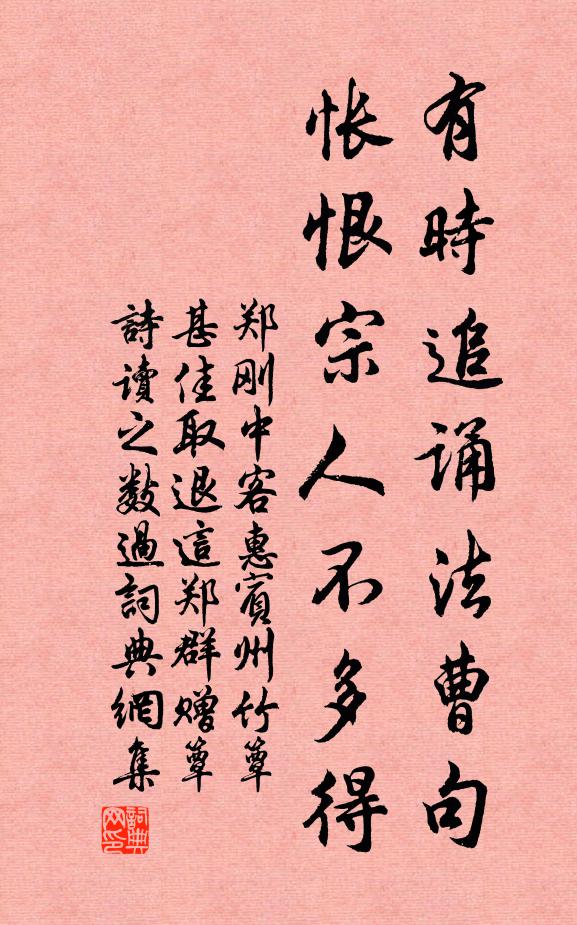 有時追诵法曹句
悵恨宗人不多得
郑刚中客惠賓州竹簟
甚佳取退這郑群赠簟
詩讀之数過詞典網集
詞典网印